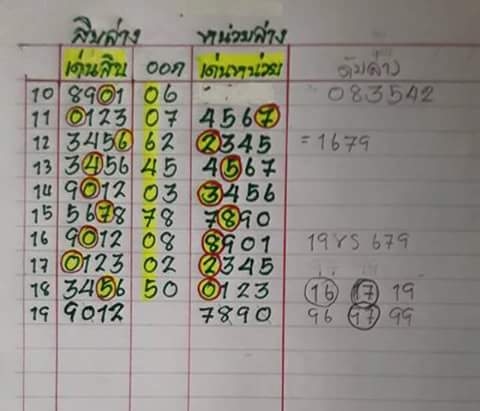 สิบล่าง หน่วยล่าง
เด่นสิบ ออก เด่นหน่วย ดับล่าง
10 8901 06 083542
11 0123 07 4567
12 3456 62 2345 = 1679
13 3456 45 4567
14 9012 03 3456
15 5678 78 7890
16 9012 08 8901 19 679
17 0123 02 2345
18 3456 50 0123 16 17 19
19 9012 7890 96 97 99